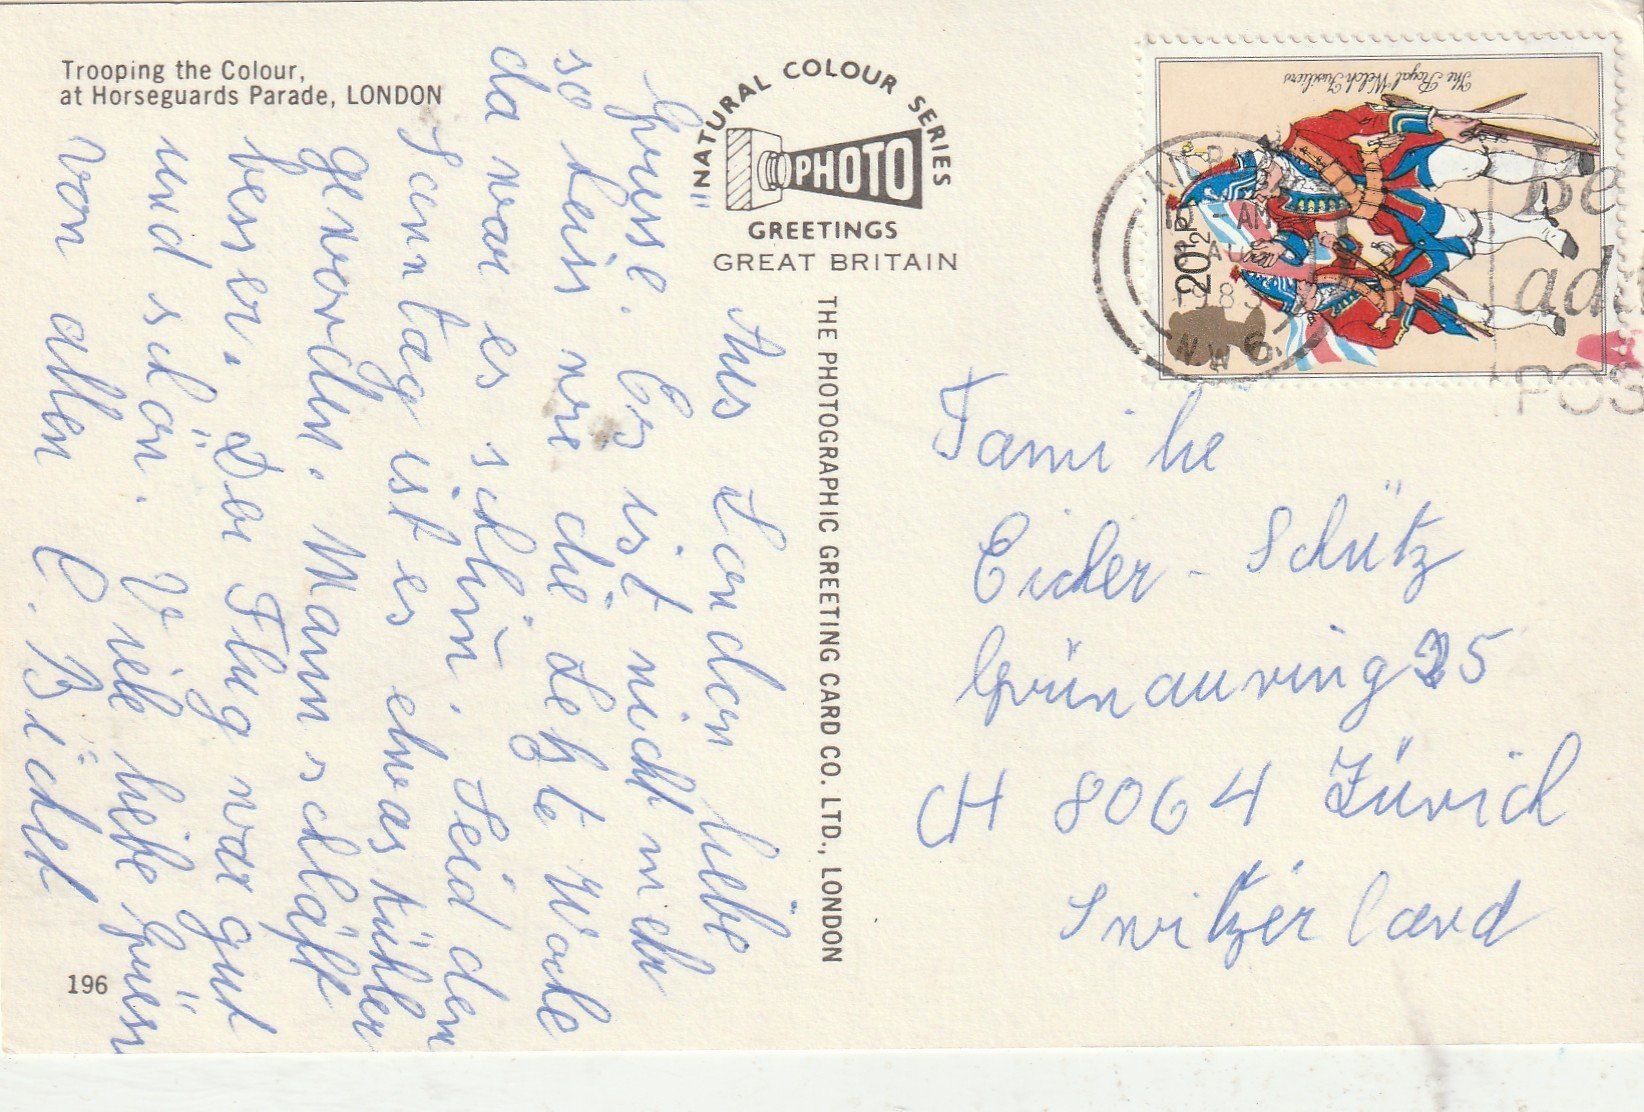 Trooping the Colour,
at Horseguards Parade, LONDON
"NATURAL COLOUR SERIES
PHOTO
GREETINGS
GREAT BRITAIN
THE PHOTOGRAPHIC GREETING CARD CO. LTD., LONDON
196
Aus London liebe
Grüsse. Es ist nicht mehr
so heiss wie die Letzte Woche
da war es schlim. Seid dem
Sonntag ist es etwas kühler
geworden. Mann schläft
besser. Der Flug war gut
und schön. Viele liebe Grüsse
von allen C. Büchel
The Royal Welch Fusiliers
20½P
AM
AUG
1983
N.W.6.
Be
POS
Familie
Eicher - Schütz
Grünauring 25
CH 8064 Zürich
Switzerland